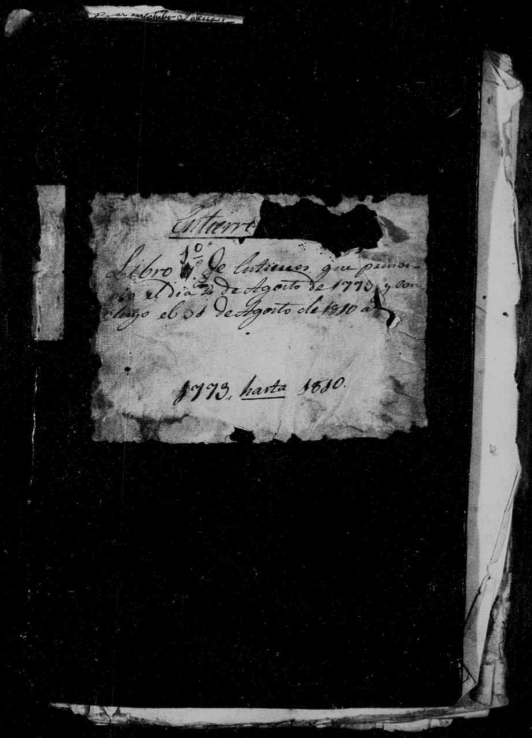 Entierr
Libro 1º de Entierros, que princi-
pio el Dia 2 de Agosto de 1773, y con
cluyo el 31 de Agosto de 1810 a
1773, hasta 1810.